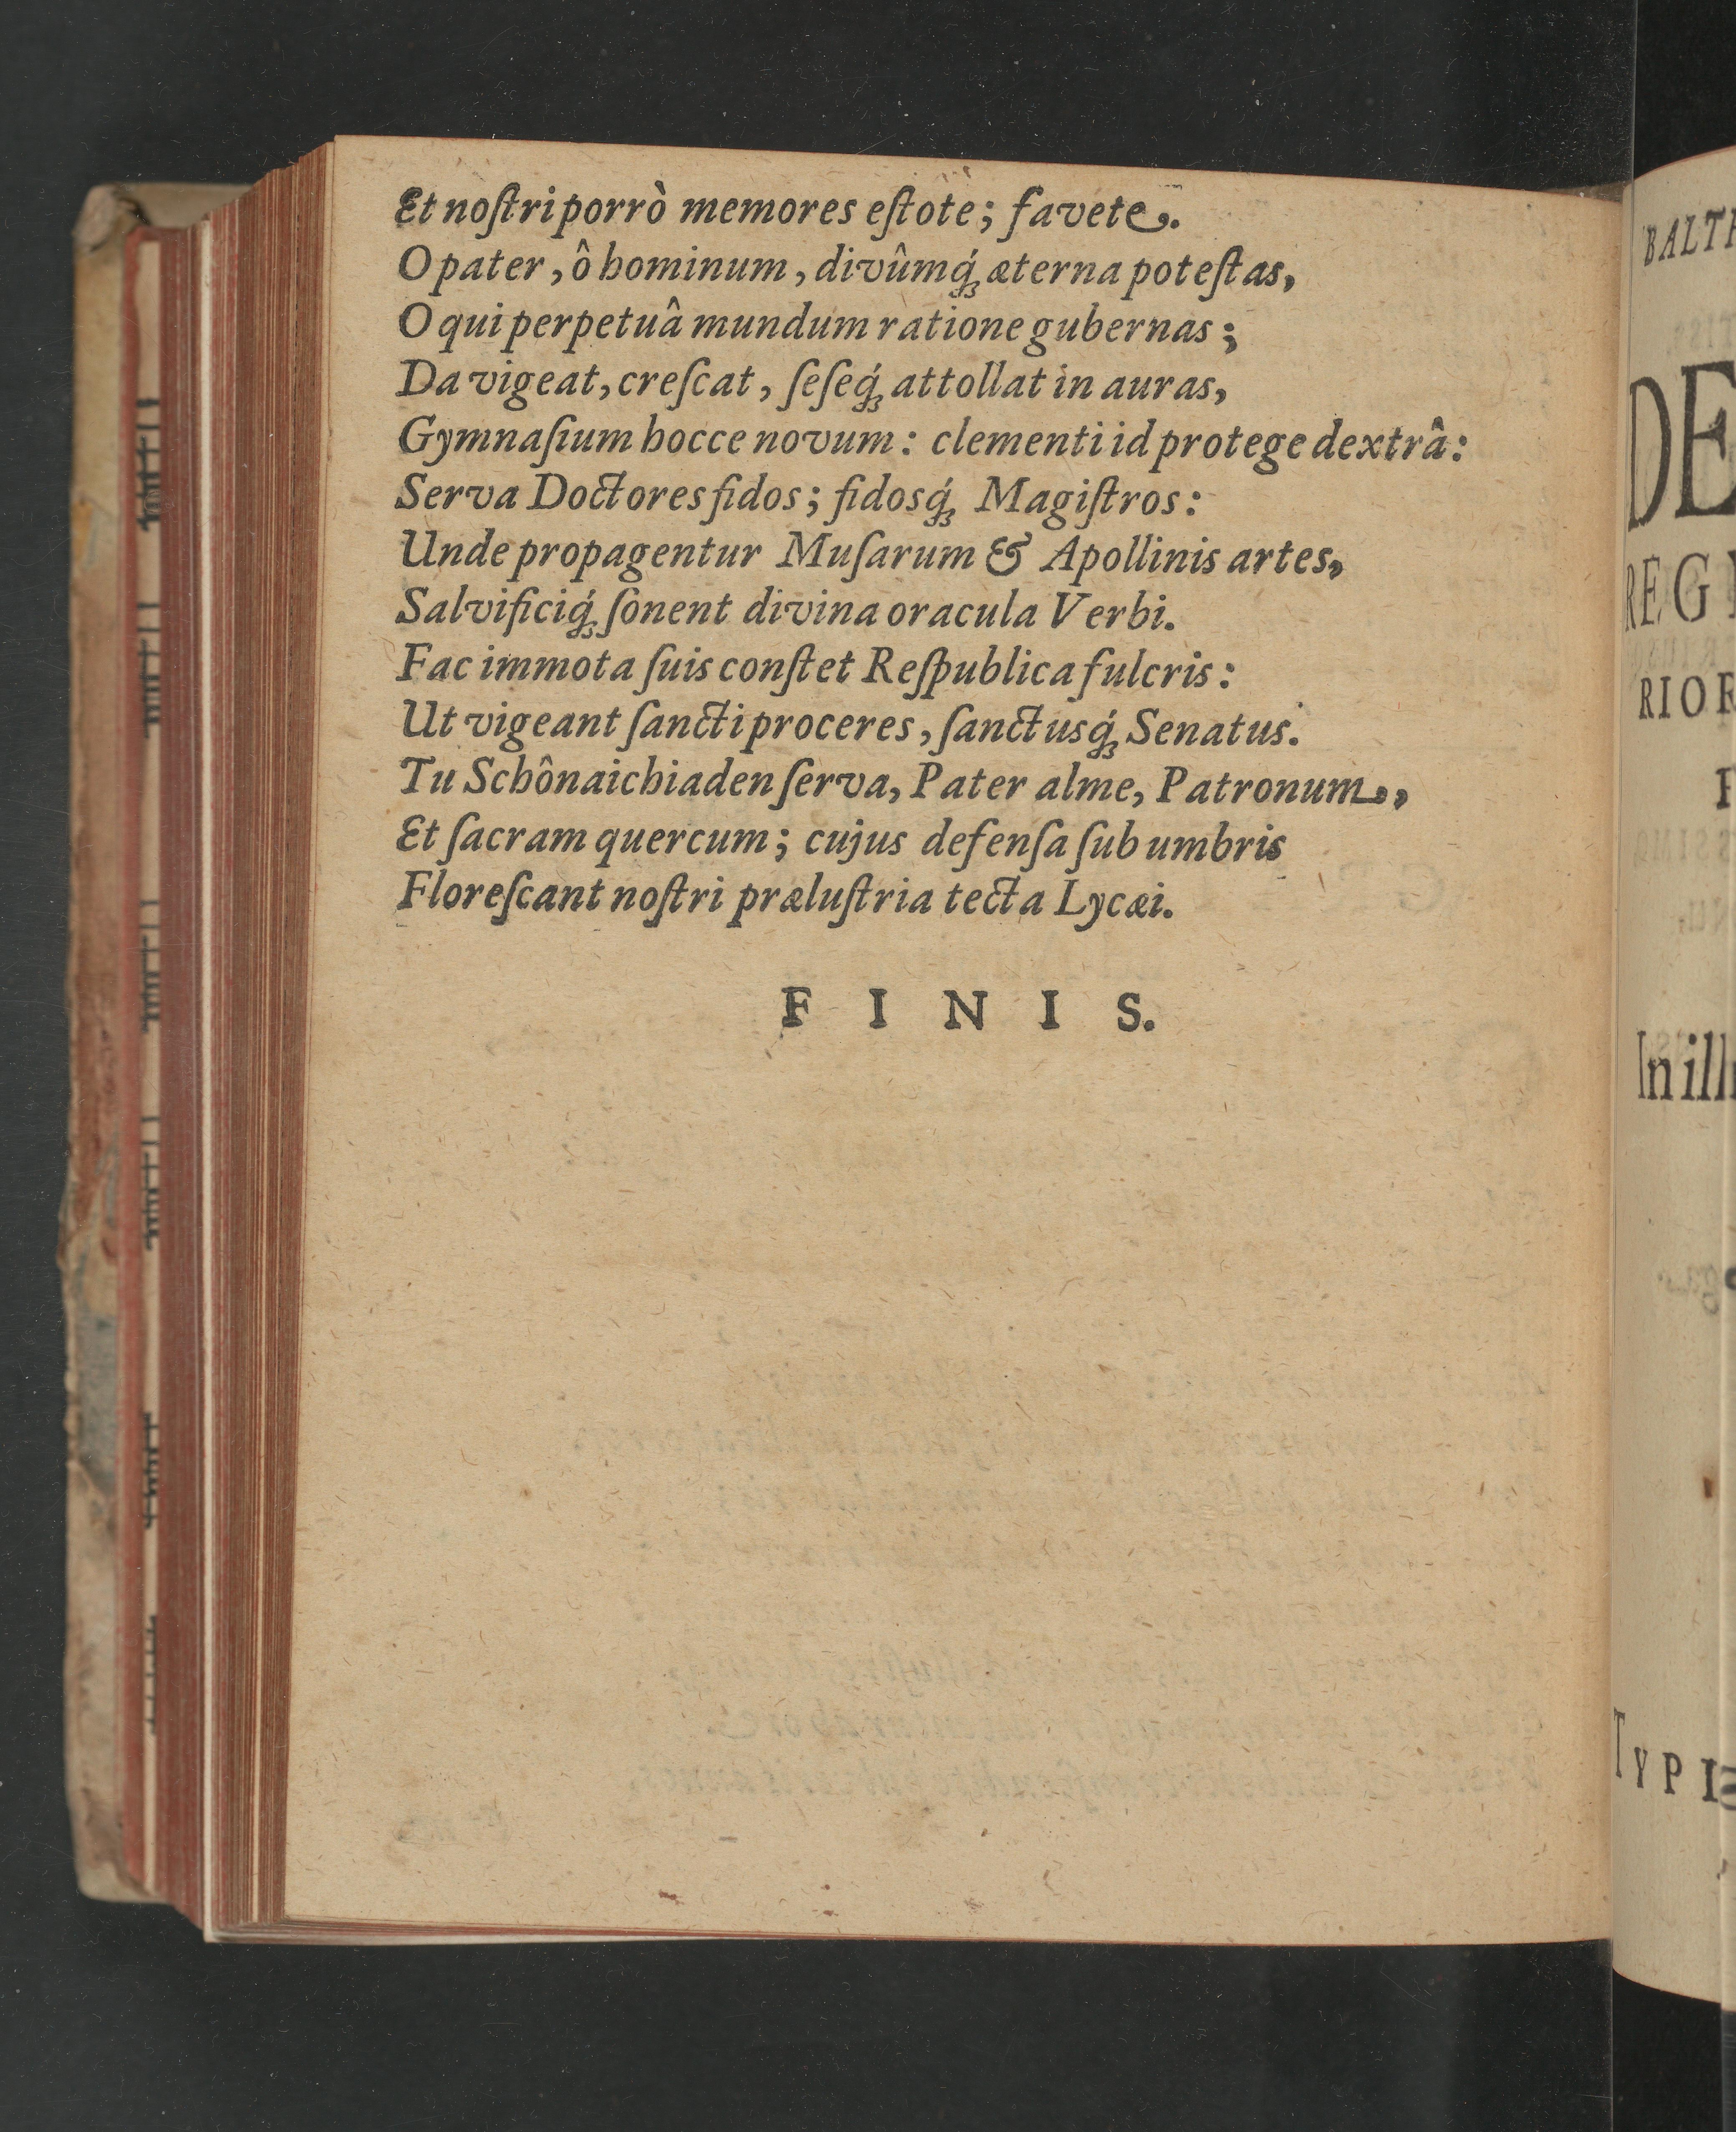 Et noſtri porrò memores eſtote; favete.
O pater, ô hominum, divûmq́ꝫ æterna poteſtas,
O qui perpetuâ mundum ratione gubernas;
Da vigeat, creſcat, ſeſeq́ꝫ attollat in auras,
Gymnaſium hocce novum: clementi id protege dextrâ:
Serva Doctores fidos; fidosq́ꝫ Magiſtros:
Unde propagentur Muſarum & Apollinis artes,
Salvificiq́ꝫ ſonent divina oracula Verbi.
Fac immota ſuis conſtet Reſpublica fulcris:
Ut vigeant ſancti proceres, ſanctusq́ꝫ Senatus.
Tu Schônaichiaden ſerva, Pater alme, Patronum,
Et ſacram quercum; cujus defenſa ſub umbris
Floreſcant noſtri præluſtria tecta Lycæi.
F I N I S.
BALTH
DE
REGI
RIOR
In ill
TYPI